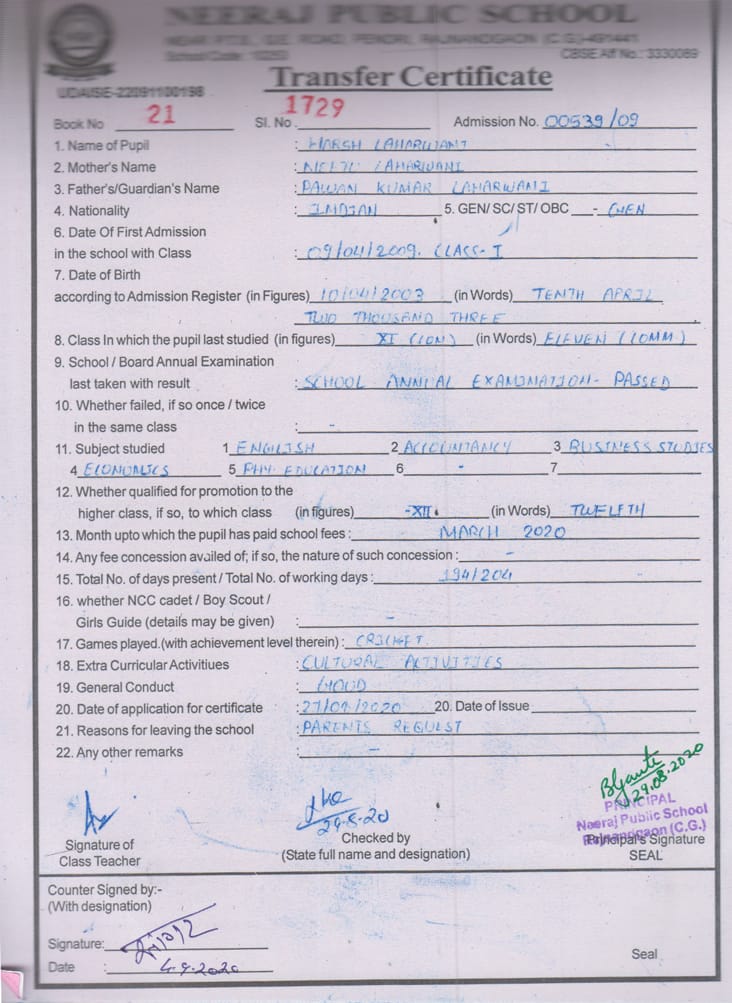 NEERAJ PUBLIC SCHOOL
NEAR P.T.S., G.E. ROAD, PENDRI, RAJNANDGAON (C.G.)-491441
School Code : CBSE Aff No.: 3330069
Transfer Certificate
UDAISE-22091100198
Book No 21 Sl. No. 1729 Admission No. 00539/09
1. Name of Pupil : HARSH LAHARWANI
2. Mother's Name : LAHARWANI
3. Father's/Guardian's Name : PAWAN KUMAR LAHARWANI
4. Nationality : INDIAN 5. GEN/ SC/ ST/ OBC - GEN
6. Date Of First Admission
in the school with Class : 09/04/2009. CLASS-I
7. Date of Birth
according to Admission Register (in Figures) 10/04/2003 (in Words) TENTH APRIL
TWO THOUSAND THREE
8. Class In which the pupil last studied (in figures) XI (COM) (in Words) ELEVEN (COMM)
9. School / Board Annual Examination
last taken with result : SCHOOL ANNUAL EXAMINATION- PASSED
10. Whether failed, if so once / twice
in the same class : -
11. Subject studied 1 ENGLISH 2 ACCOUNTANCY 3 BUSINESS STUDIES
4 ECONOMICS 5 PHY. EDUCATION 6 - 7
12. Whether qualified for promotion to the
higher class, if so, to which class (in figures) -XII. (in Words) TWELFTH
13. Month upto which the pupil has paid school fees : MARCH 2020
14. Any fee concession availed of; if so, the nature of such concession : -
15. Total No. of days present / Total No. of working days : 194/204
16. whether NCC cadet / Boy Scout /
Girls Guide (details may be given) : -
17. Games played.(with achievement level therein) : CRICKET.
18. Extra Curricular Activitiues : CULTURAL ACTIVITIES
19. General Conduct : GOOD
20. Date of application for certificate : 20. Date of Issue
21. Reasons for leaving the school : PARENTS REQUEST
22. Any other remarks : -
29.08.2020
29-8-20
PRINCIPAL
Neeraj Public School
Rajnandgaon (C.G.)
Signature of Checked by Principal's Signature
Class Teacher (State full name and designation) SEAL
Counter Signed by:-
(With designation)
Signature:
Seal
Date : 4.9.2020